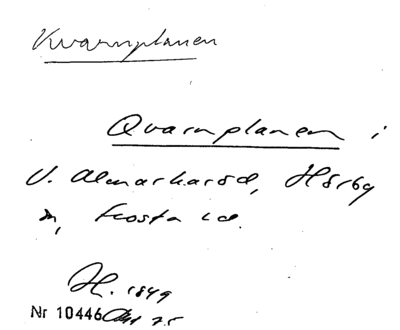 Kvarnplanen
Qvarnplanen i
V. Almarkaröd, Hörby
sn, Frosta hd.
H. 1849
Nr 10446